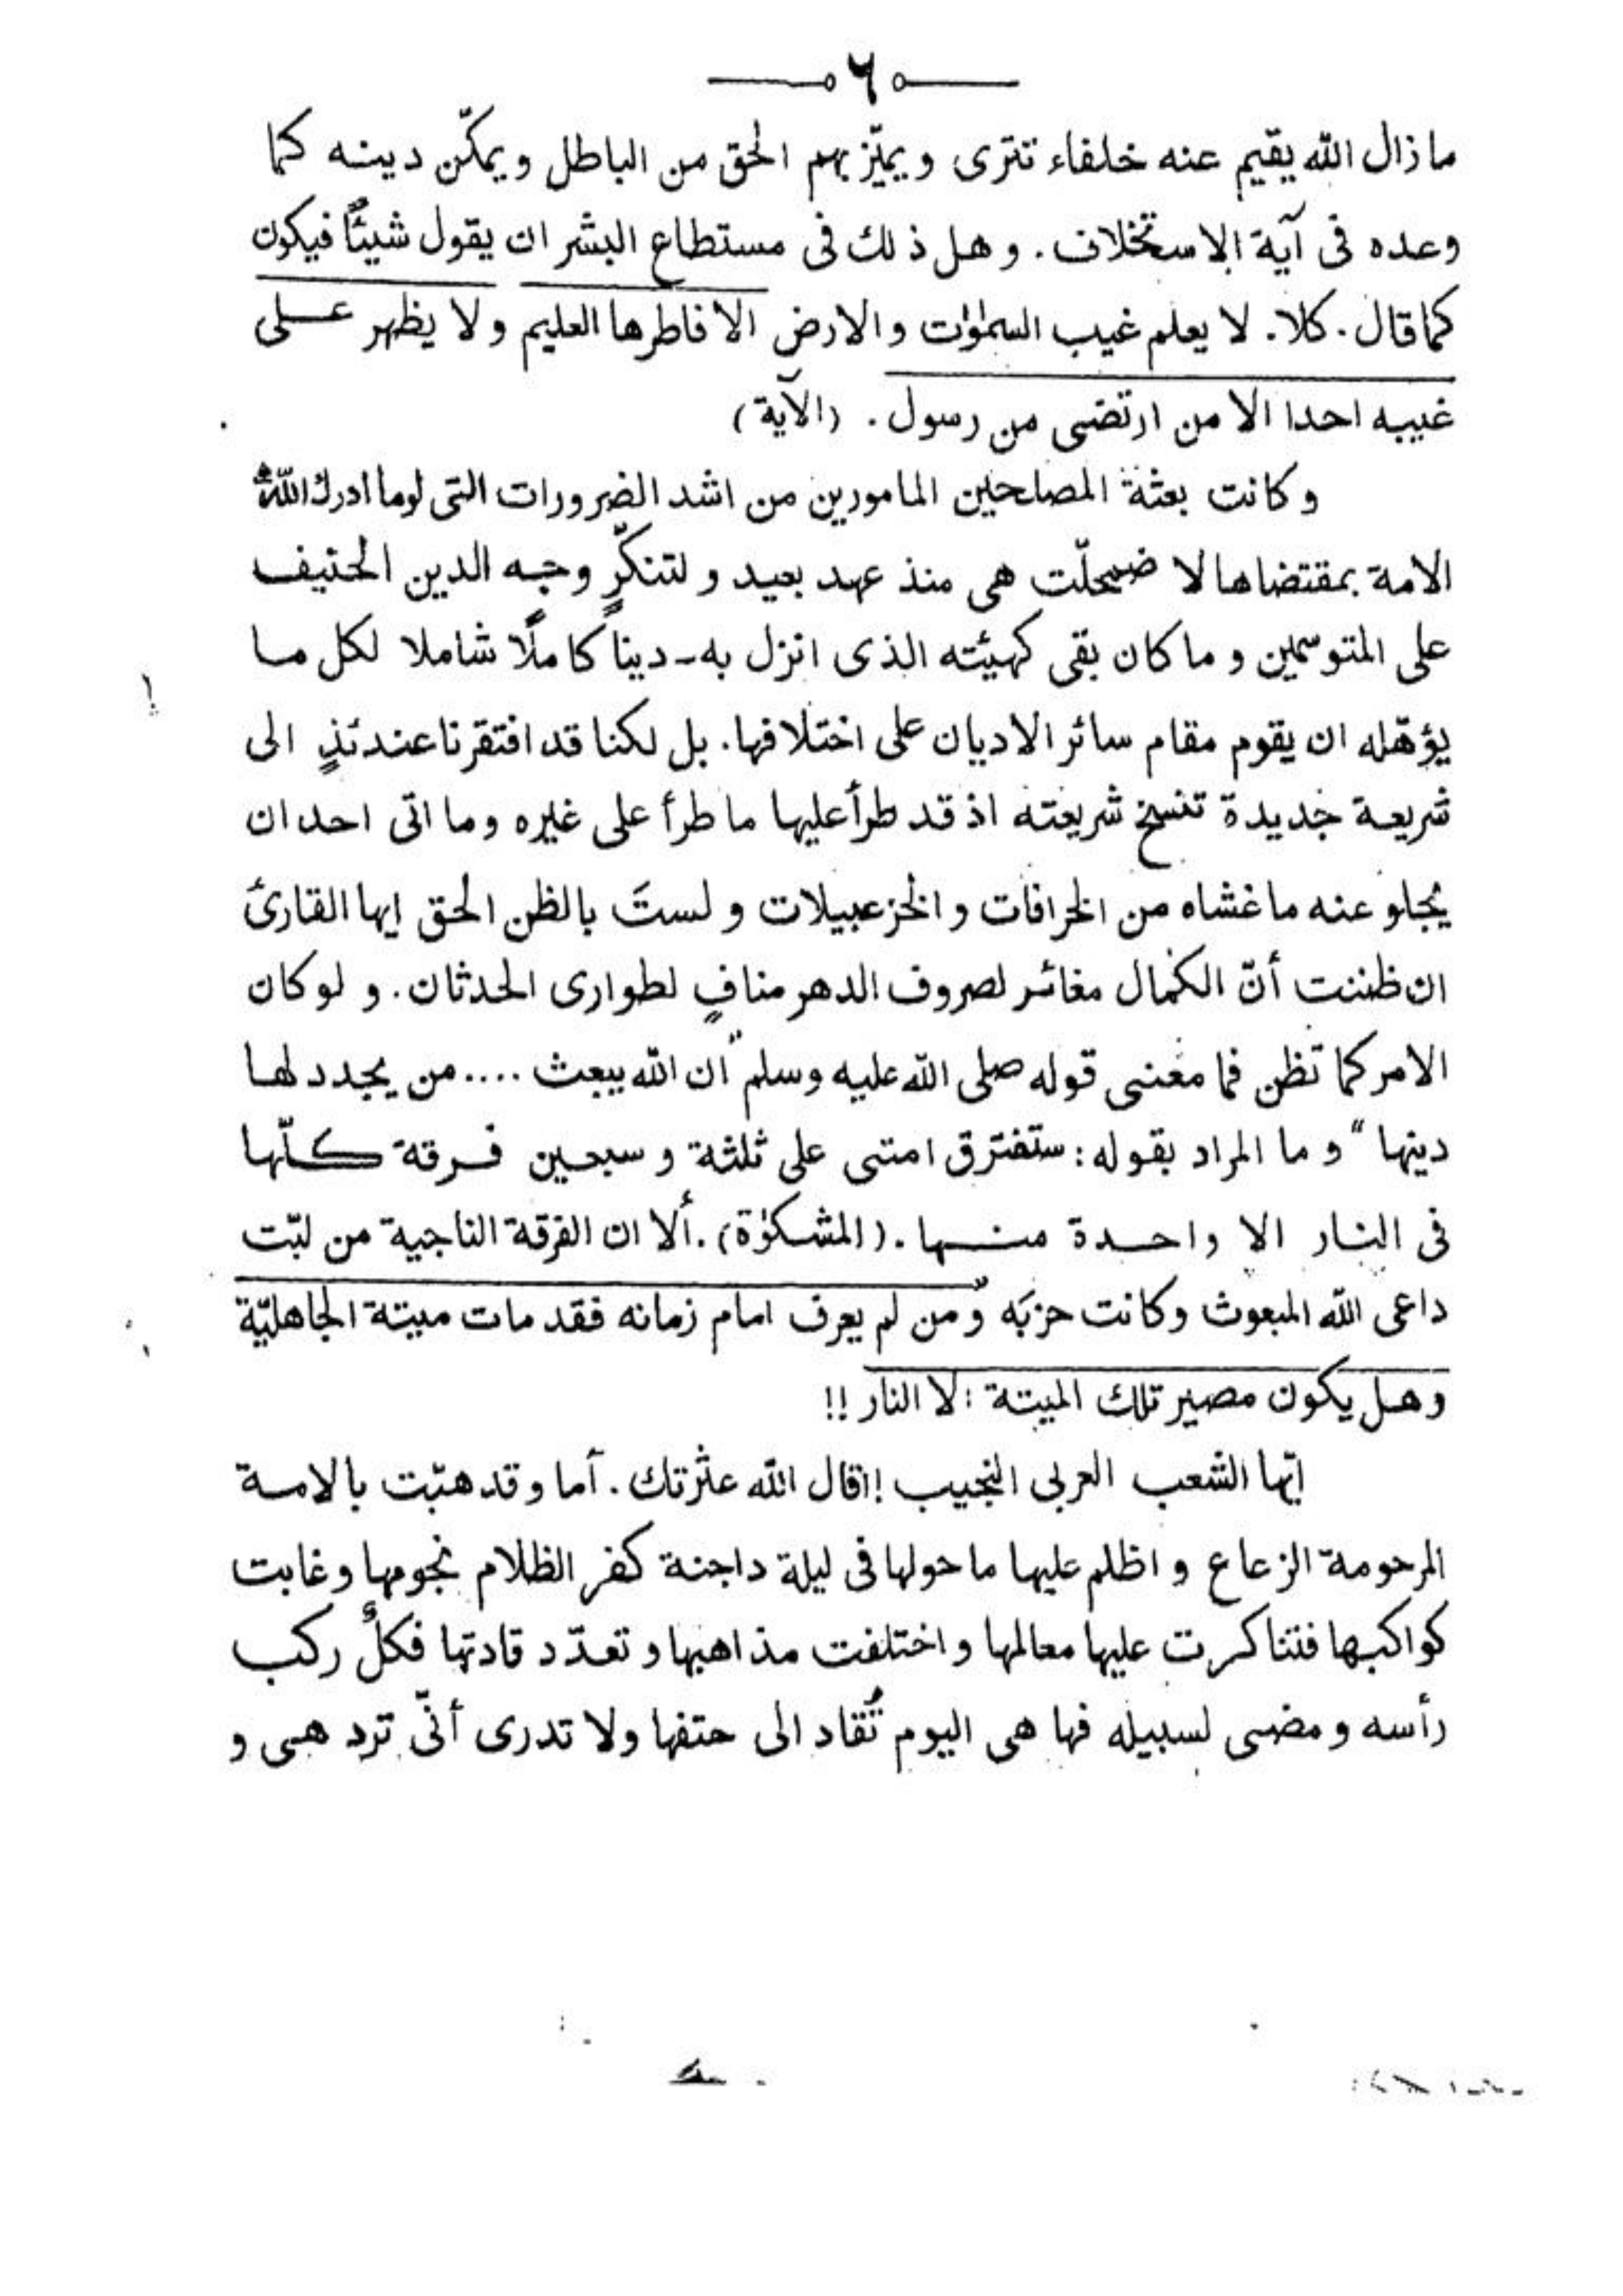 ٦
مازال الله يقيم عنه خلفاء تترى ويميّز بهم الحق من الباطل ويمكّن دينه كما
وعده فى آية الاستخلاف. وهل ذلك فى مستطاع البشر ان يقول شيئًا فيكون
كما قال. كلا. لا يعلم غيب السمٰوٰت والارض الا فاطرها العليم ولا يظهر عـلى
غيبه احدا الا من ارتضى من رسول. (الآية)
وكانت بعثة المصلحين المامورين من اشد الضرورات التى لوما ادرك اللّٰهُ
الامة بمقتضاها لاضمحلّت هى منذ عهد بعيد ولتنكّر وجه الدين الحنيف
على المتوسمين وما كان بقى كهيئته الذى انزل به-دينا كاملًا شاملا لكل ما
يؤهّله ان يقوم مقام سائر الاديان على اختلافها. بل لكنا قد افتقرنا عندئذٍ الى
شريعة جديدة تنسخ شريعته اذ قد طرأ عليها ما طرأ على غيره وما اتى احد ان
يجلو عنه ما غشاه من الخرافات والخزعبيلات ولستَ بالظن الحق ايها القارئ
ان ظننت أنّ الكمال مغائر لصروف الدهر منافٍ لطوارى الحدثان. ولو كان
الامر كما تظن فما معنى قوله صلى الله عليه وسلم "ان الله يبعث .... من يجدد لها
دينها" وما المراد بقوله: ستفترق امتى على ثلثة وسبعين فرقة كلّها
فى النار الا واحدة منها. (المشكوٰة). ألا ان الفرقة الناجية من لبّت
داعى الله المبعوث وكانت حزبَه "ومن لم يعرف امام زمانه فقد مات ميتة الجاهليّة
وهل يكون مصير تلك الميتة الا النار!!
ايّها الشعب العربى النجيب! اقال الله عثرتك. أما وقد هبّت بالامة
المرحومة الزعاع واظلم عليها ما حولها فى ليلة داجنة كفر الظلام نجومها وغابت
كواكبها فتناكرت عليها معالمها واختلفت مذاهبها وتعدّد قادتها فكلٌ ركب
رأسه ومضى لسبيله فها هى اليوم تُقاد الى حتفها ولا تدرى أنّى ترد هى و